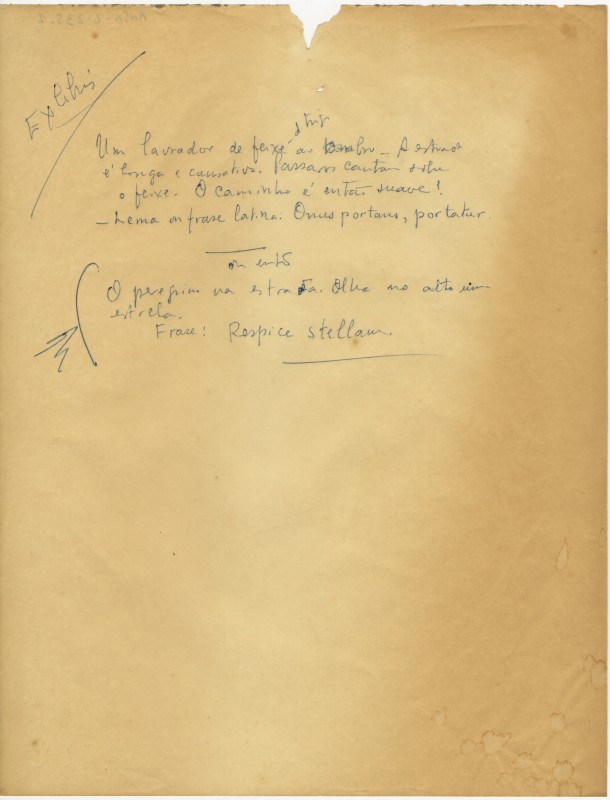 Ex libris
Um lavrador de feixe ao ombro – A estrada
é longa e cansativa. Passaros cantam sobre
o feixe. O caminho é então suave!
– Lema ou frase latina: Onus portans, portatur
ou então
O peregrino na estrada. Olha no alto uma
estrela.
Frase: Respice stellam.